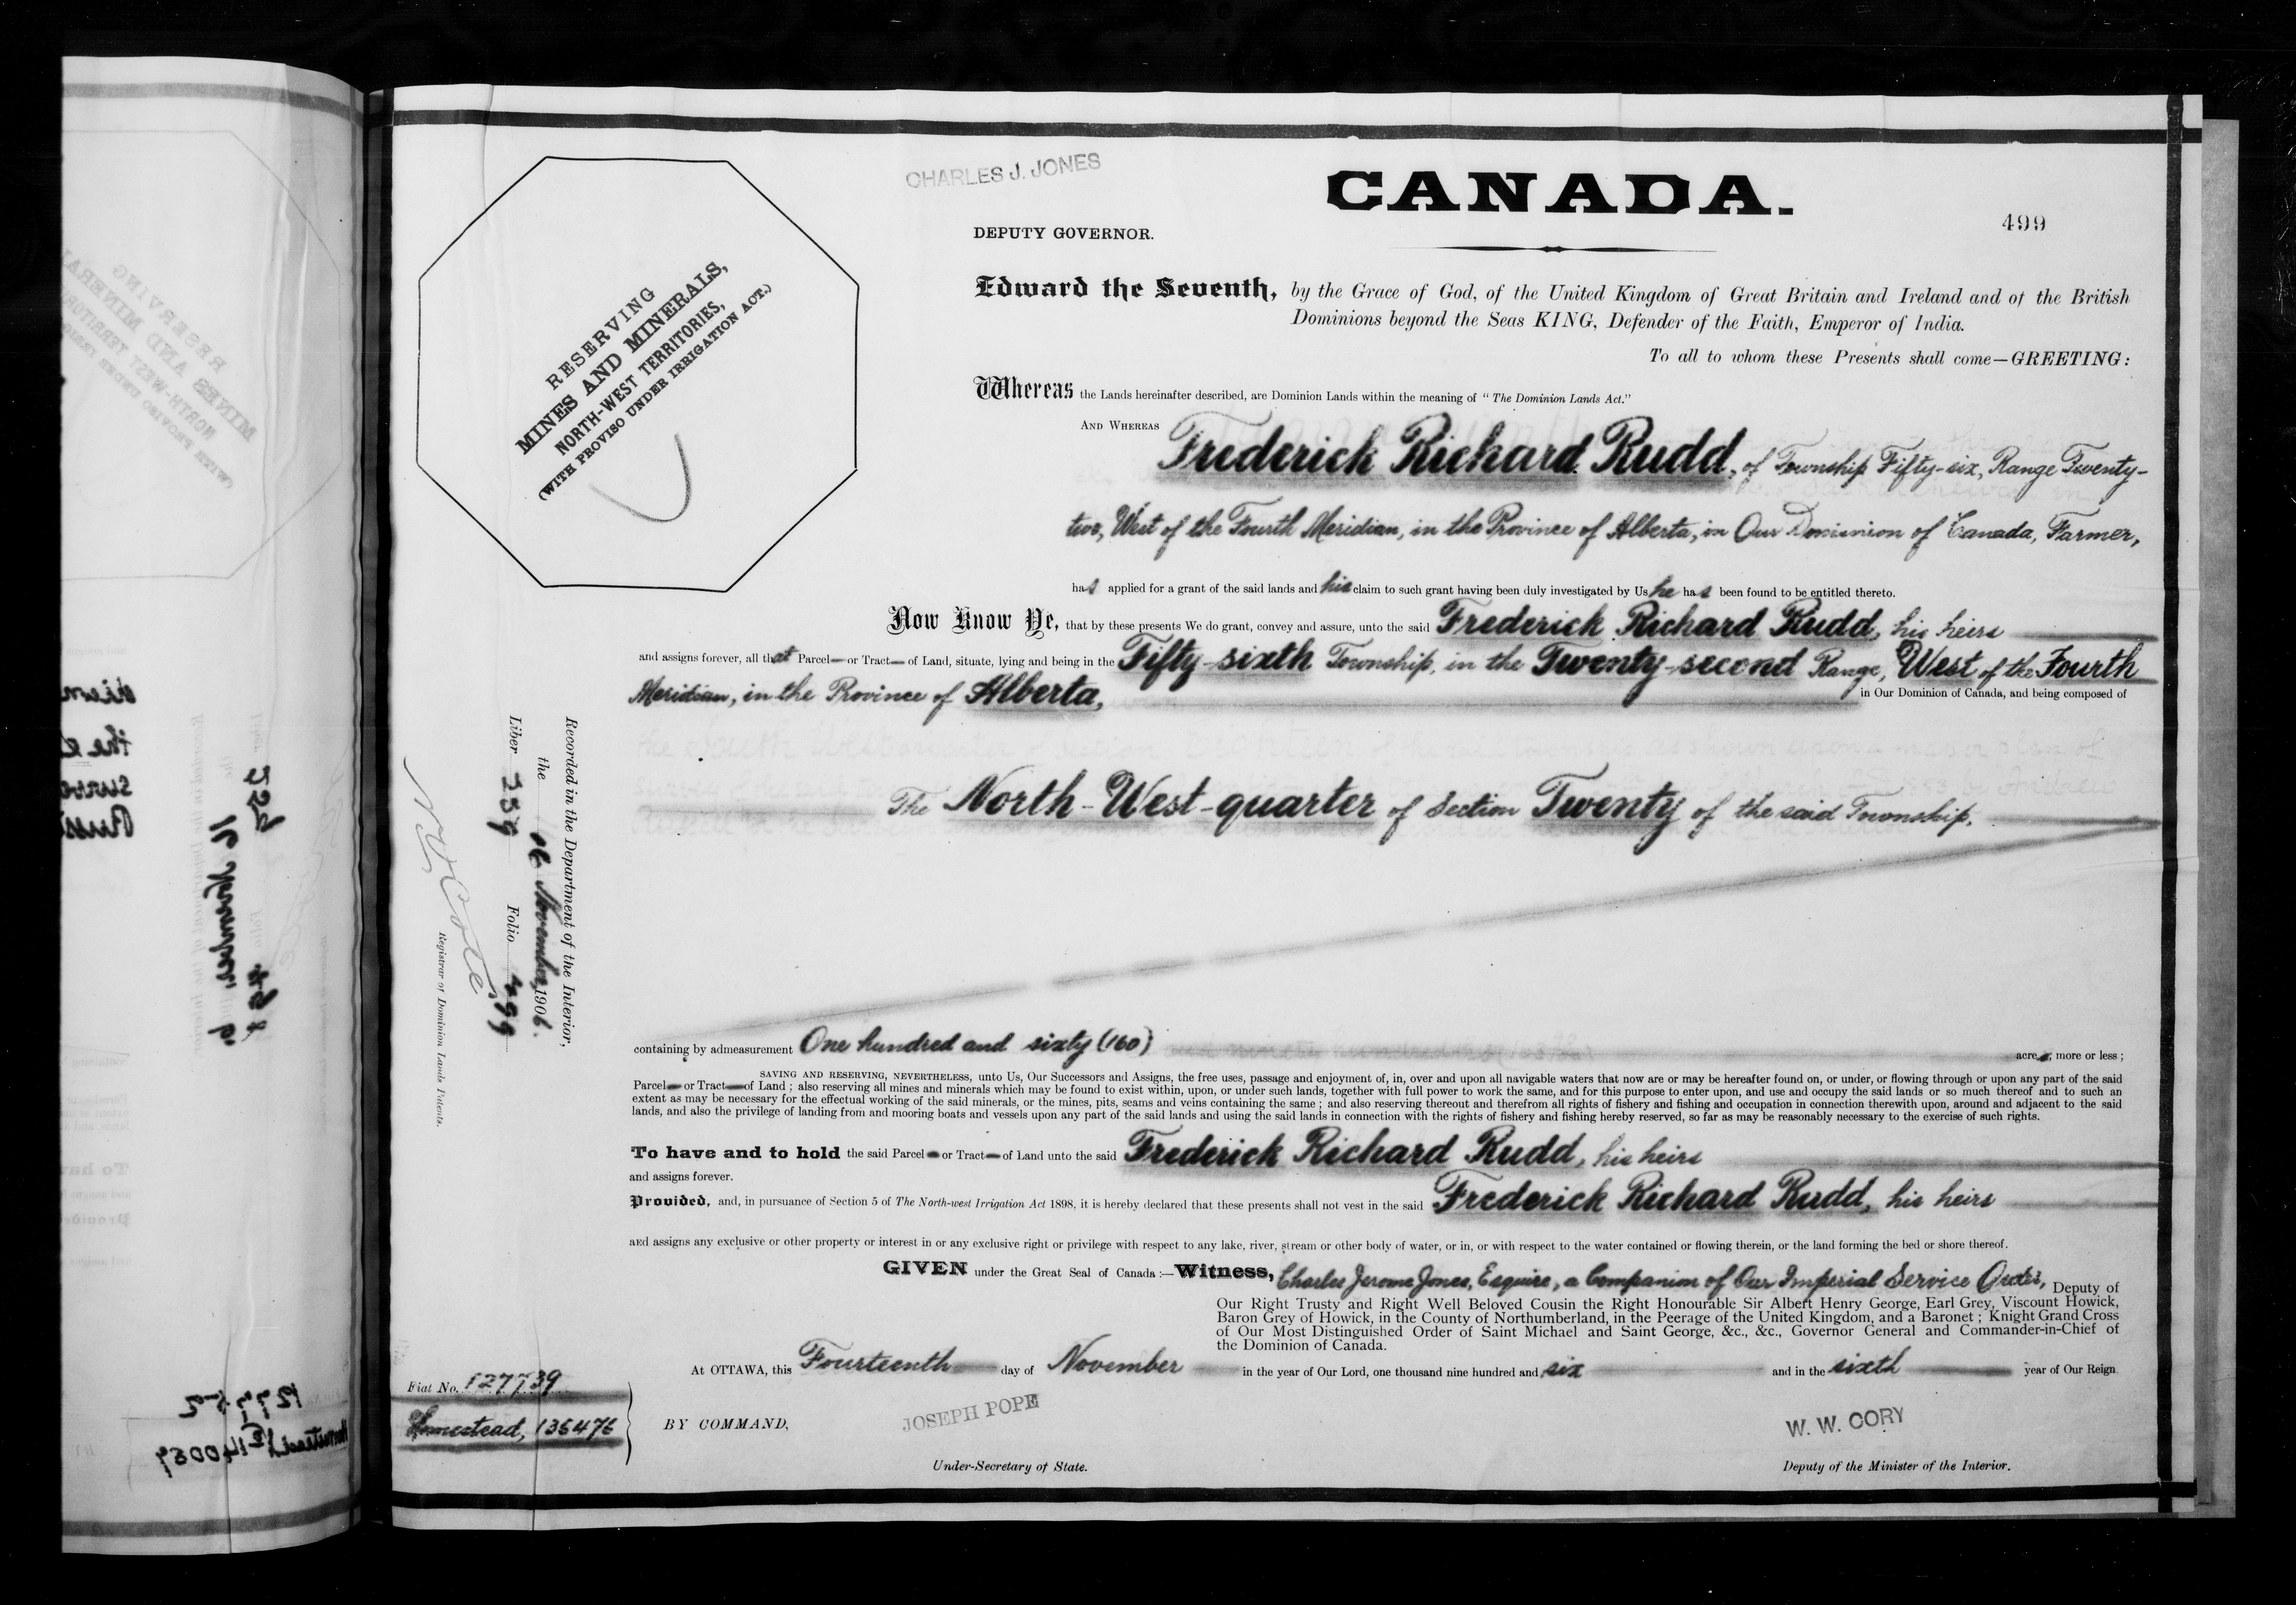 CHARLES J. JONES
CANADA.
DEPUTY GOVERNOR.
499
RESERVING
MINES AND MINERALS,
NORTH-WEST TERRITORIES,
(WITH PROVISO UNDER IRRIGATION ACT.)
Edward the Seventh, by the Grace of God, of the United Kingdom of Great Britain and Ireland and of the British
Dominions beyond the Seas KING, Defender of the Faith, Emperor of India.
To all to whom these Presents shall come—GREETING:
Whereas the Lands hereinafter described, are Dominion Lands within the meaning of "The Dominion Lands Act."
AND WHEREAS Frederick Richard Rudd, of Township Fifty-six, Range Twenty-
two, West of the Fourth Meridian, in the Province of Alberta, in Our Dominion of Canada, Farmer,
has applied for a grant of the said lands and his claim to such grant having been duly investigated by Us he has been found to be entitled thereto.
Now Know Ye, that by these presents We do grant, convey and assure, unto the said Frederick Richard Rudd, his heirs
and assigns forever, all that Parcel or Tract of Land, situate, lying and being in the Fifty-sixth Township, in the Twenty-second Range, West of the Fourth
Meridian, in the Province of Alberta, in Our Dominion of Canada, and being composed of
The North-West-quarter of Section Twenty of the said Township.
Recorded in the Department of the Interior,
the 16 November, 1906.
Liber Folio 499
N. O. Coté
Registrar of Dominion Lands Patents.
containing by admeasurement One hundred and sixty (160) acres, more or less;
SAVING AND RESERVING, NEVERTHELESS, unto Us, Our Successors and Assigns, the free uses, passage and enjoyment of, in, over and upon all navigable waters that now are or may be hereafter found on, or under, or flowing through or upon any part of the said
Parcel or Tract of Land; also reserving all mines and minerals which may be found to exist within, upon, or under such lands, together with full power to work the same, and for this purpose to enter upon, and use and occupy the said lands or so much thereof and to such an
extent as may be necessary for the effectual working of the said minerals, or the mines, pits, seams and veins containing the same; and also reserving thereout and therefrom all rights of fishery and fishing and occupation in connection therewith upon, around and adjacent to the said
lands, and also the privilege of landing from and mooring boats and vessels upon any part of the said lands and using the said lands in connection with the rights of fishery and fishing hereby reserved, so far as may be reasonably necessary to the exercise of such rights.
To have and to hold the said Parcel or Tract of Land unto the said Frederick Richard Rudd, his heirs
and assigns forever.
Provided, and, in pursuance of Section 5 of The North-west Irrigation Act 1898, it is hereby declared that these presents shall not vest in the said Frederick Richard Rudd, his heirs
and assigns any exclusive or other property or interest in or any exclusive right or privilege with respect to any lake, river, stream or other body of water, or in, or with respect to the water contained or flowing therein, or the land forming the bed or shore thereof.
GIVEN under the Great Seal of Canada:—Witness, Charles Jerome Jones, Esquire, a Companion of Our Imperial Service Order, Deputy of
Our Right Trusty and Right Well Beloved Cousin the Right Honourable Sir Albert Henry George, Earl Grey, Viscount Howick,
Baron Grey of Howick, in the County of Northumberland, in the Peerage of the United Kingdom, and a Baronet; Knight Grand Cross
of Our Most Distinguished Order of Saint Michael and Saint George, &c., &c., Governor General and Commander-in-Chief of
the Dominion of Canada.
At OTTAWA, this Fourteenth day of November in the year of Our Lord, one thousand nine hundred and six and in the sixth year of Our Reign
Fiat No. 127739
Homestead, 136476
BY COMMAND,
JOSEPH POPE
Under-Secretary of State.
W. W. CORY
Deputy of the Minister of the Interior.